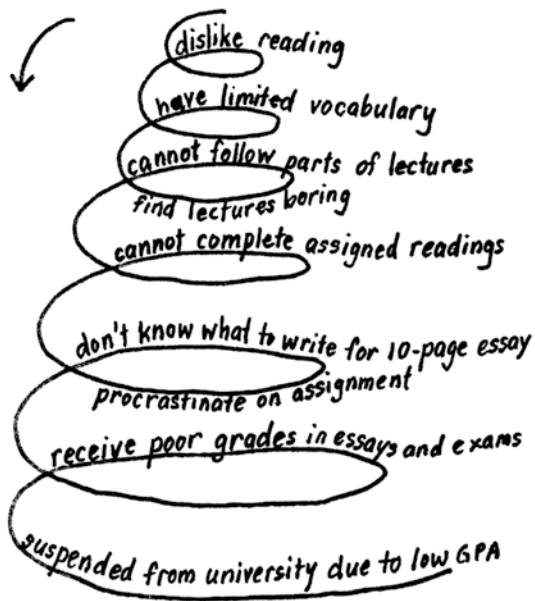 dislike reading
have limited vocabulary
cannot follow parts of lectures
find lectures boring
cannot complete assigned readings
don't know what to write for 10-page essay
procrastinate on assignment
receive poor grades in essays and exams
suspended from university due to low GPA